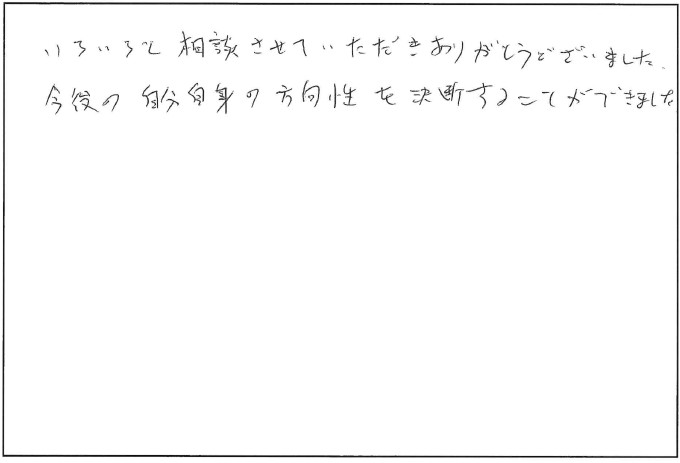 いろいろと相談させていただきありがとうございました.
今後の自分自身の方向性を決断することができました